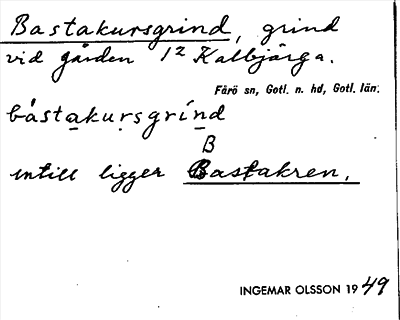 Bastakursgrind, grind
vid gården 1² Kalbjärga.
Fårö sn, Gotl. n. hd, Gotl. län.
båstakursgrínd
B
intill ligger Bastakren.
INGEMAR OLSSON 1949